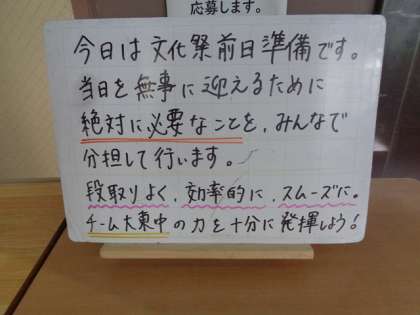 応募します。
今日は文化祭前日準備です。
当日を無事に迎えるために
絶対に必要なことを、みんなで
分担して行います。
段取りよく、効率的に、スムーズに。
チーム大東中の力を十分に発揮しよう!